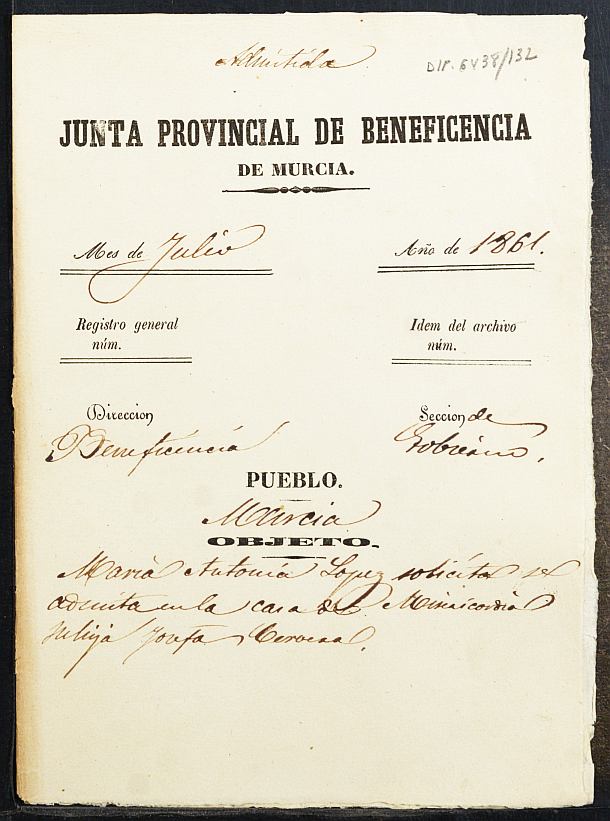 Admitida
DIP. 6438/132
JUNTA PROVINCIAL DE BENEFICENCIA
DE MURCIA.
Mes de Julio
Año de 1861.
Registro general
núm.
Idem del archivo
núm.
Direccion
Beneficencia
Seccion de
Gobierno.
PUEBLO.
Murcia
OBJETO.
Maria Antonia Lopez solicita se
admita en la casa de Misericordia
su hija Josefa